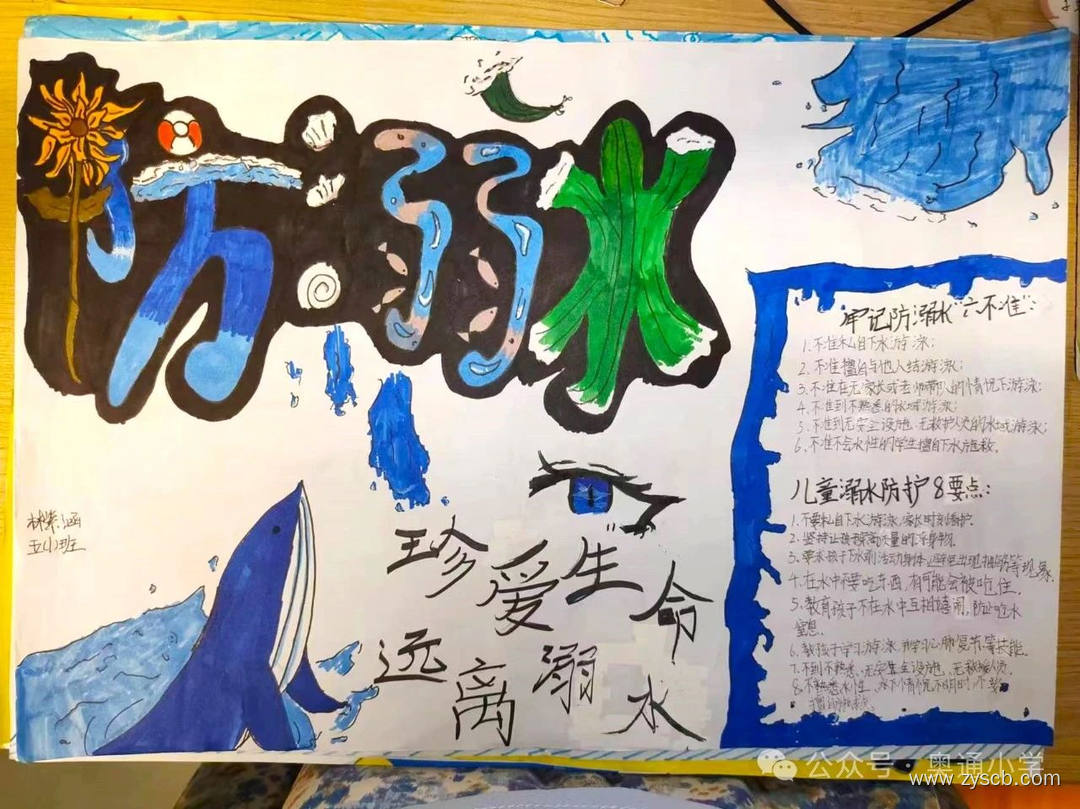 防溺水
牢记防溺水"六不准":
1.不准私自下水游泳;
2.不准擅自与他人结伴游泳;
3.不准在无家长或老师带队的情况下游泳;
4.不准到不熟悉的水域游泳;
5.不准到无安全设施、无救护人员的水域游泳;
6.不准不会水性的学生擅自下水施救。
儿童溺水防护8要点:
1.不要私自下水游泳,家长时刻看护.
2.坚持让孩子穿高质量的浮身物.
3.要求孩子下水前活动身体,避免出现抽筋等现象.
4.在水中不要吃东西,有可能会被呛住.
5.教育孩子不在水中互相嬉闹,防止呛水
窒息.
6.教孩子学习游泳,并学习心肺复苏等技能.
7.不到不熟悉、无安全设施、无救援人员
8.不熟悉水性、水下情况不明时,不要
擅自下水
林紫涵
五(1)班
珍爱生命
远离溺水
公众号·奥通小学
www.zyscb.com